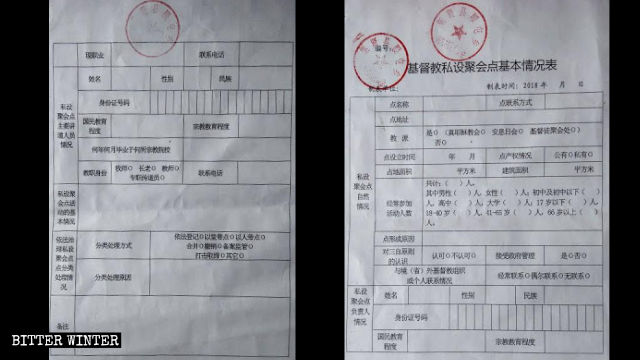 现职业 联系电话
姓名 性别 民族
身份证号码
私设聚会点主要讲道人员情况
国民教育程度 宗教教育程度
何年何月毕业于何所宗教院校
教职身份 牧师○ 长老○ 教师○ 专职传道员○ 联系电话
私设聚会点活动的基本情况
依法治理私设聚会点分类处理情况
分类处理方式 依法登记○以堂带点○以人带点○
合并○撤销○备案监管○
打击取缔○其它○
分类处理原因
备注
BITTER WINTER
编号:
基督教私设聚会点基本情况表
制表单位: 制表时间:2018年 月 日
点名称 点联系方式
点地址
教派 是○(真耶稣教会○ 安息日会○ 基督徒聚会处○)
否○
点设立时间 年 月 点产权情况 公有○私有○
点占地面积 平方米 建筑面积 平方米
私设聚会点自然情况
经常参加活动人数
共计:( )人。
其中男性( )人,女性( )人;初中及初中以下( )
人,高中( )人,大学( )人;17岁以下( )人,
18-40岁( )人,41-65( )人,66岁以上( )
人。
点形成原因
对三自原则的认识 认可○不认可○ 接受政府管理 是○否○
与境(省)外基督教组织或个人联系情况 经常联系○偶尔联系○无联系○
私设聚会点负责人情况
姓名 性别 民族
身份证号码
国民教育程度 宗教教育程度